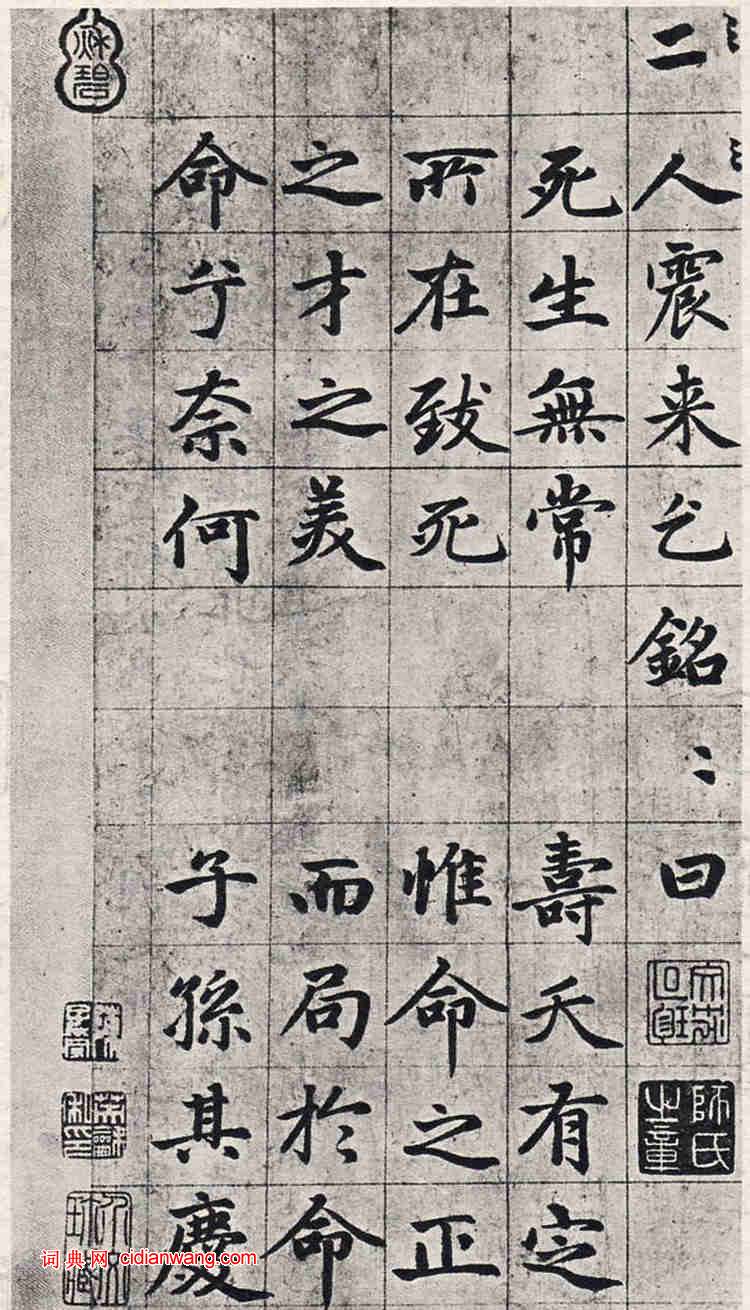 二人震来乞銘〻曰
死生無常 壽夭有定
所在致死 惟命之正
之才之美 而局於命
命兮奈何 子孫其慶
師氏之章
词典网 cidianwang.com